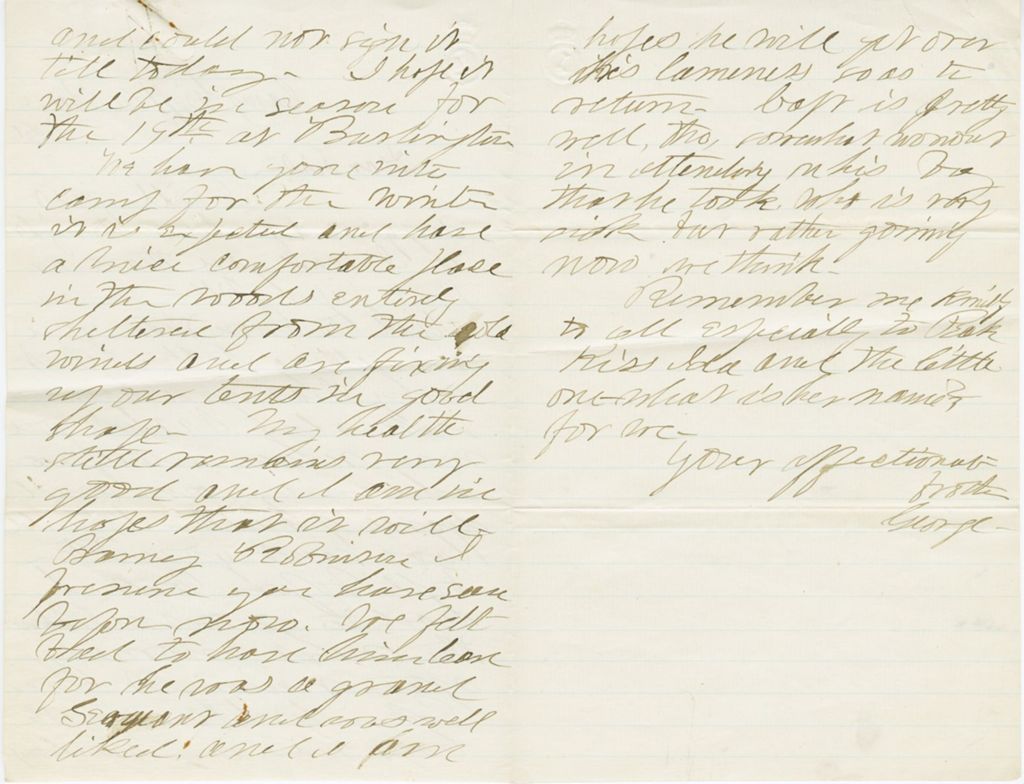 and could not sign it
till today - I hope it
will be in season for
the 19th at Burlington
We have gone into
camp for the winter
it is expected and have
a nice comfortable place
in the woods entirely
sheltered from the cold
winds and are fixing
up our tents in good
shape - My health
still remains very
good and I am in
hopes that it will -
Barney Robinson I
presume you have seen
before now. We felt
bad to have him leave
for he was a grand
Sergeant and was well
liked. and I am
hopes he will get over
this lameness so as to
return - Capt is pretty
well, tho, somewhat
in attending this boy
that he took who is very
sick but rather gaining
now we think -
Remember me kindly
to all especially to
Kiss Ida and the little
one - what is her name?
for me -
Your affectionate
Brother
George -